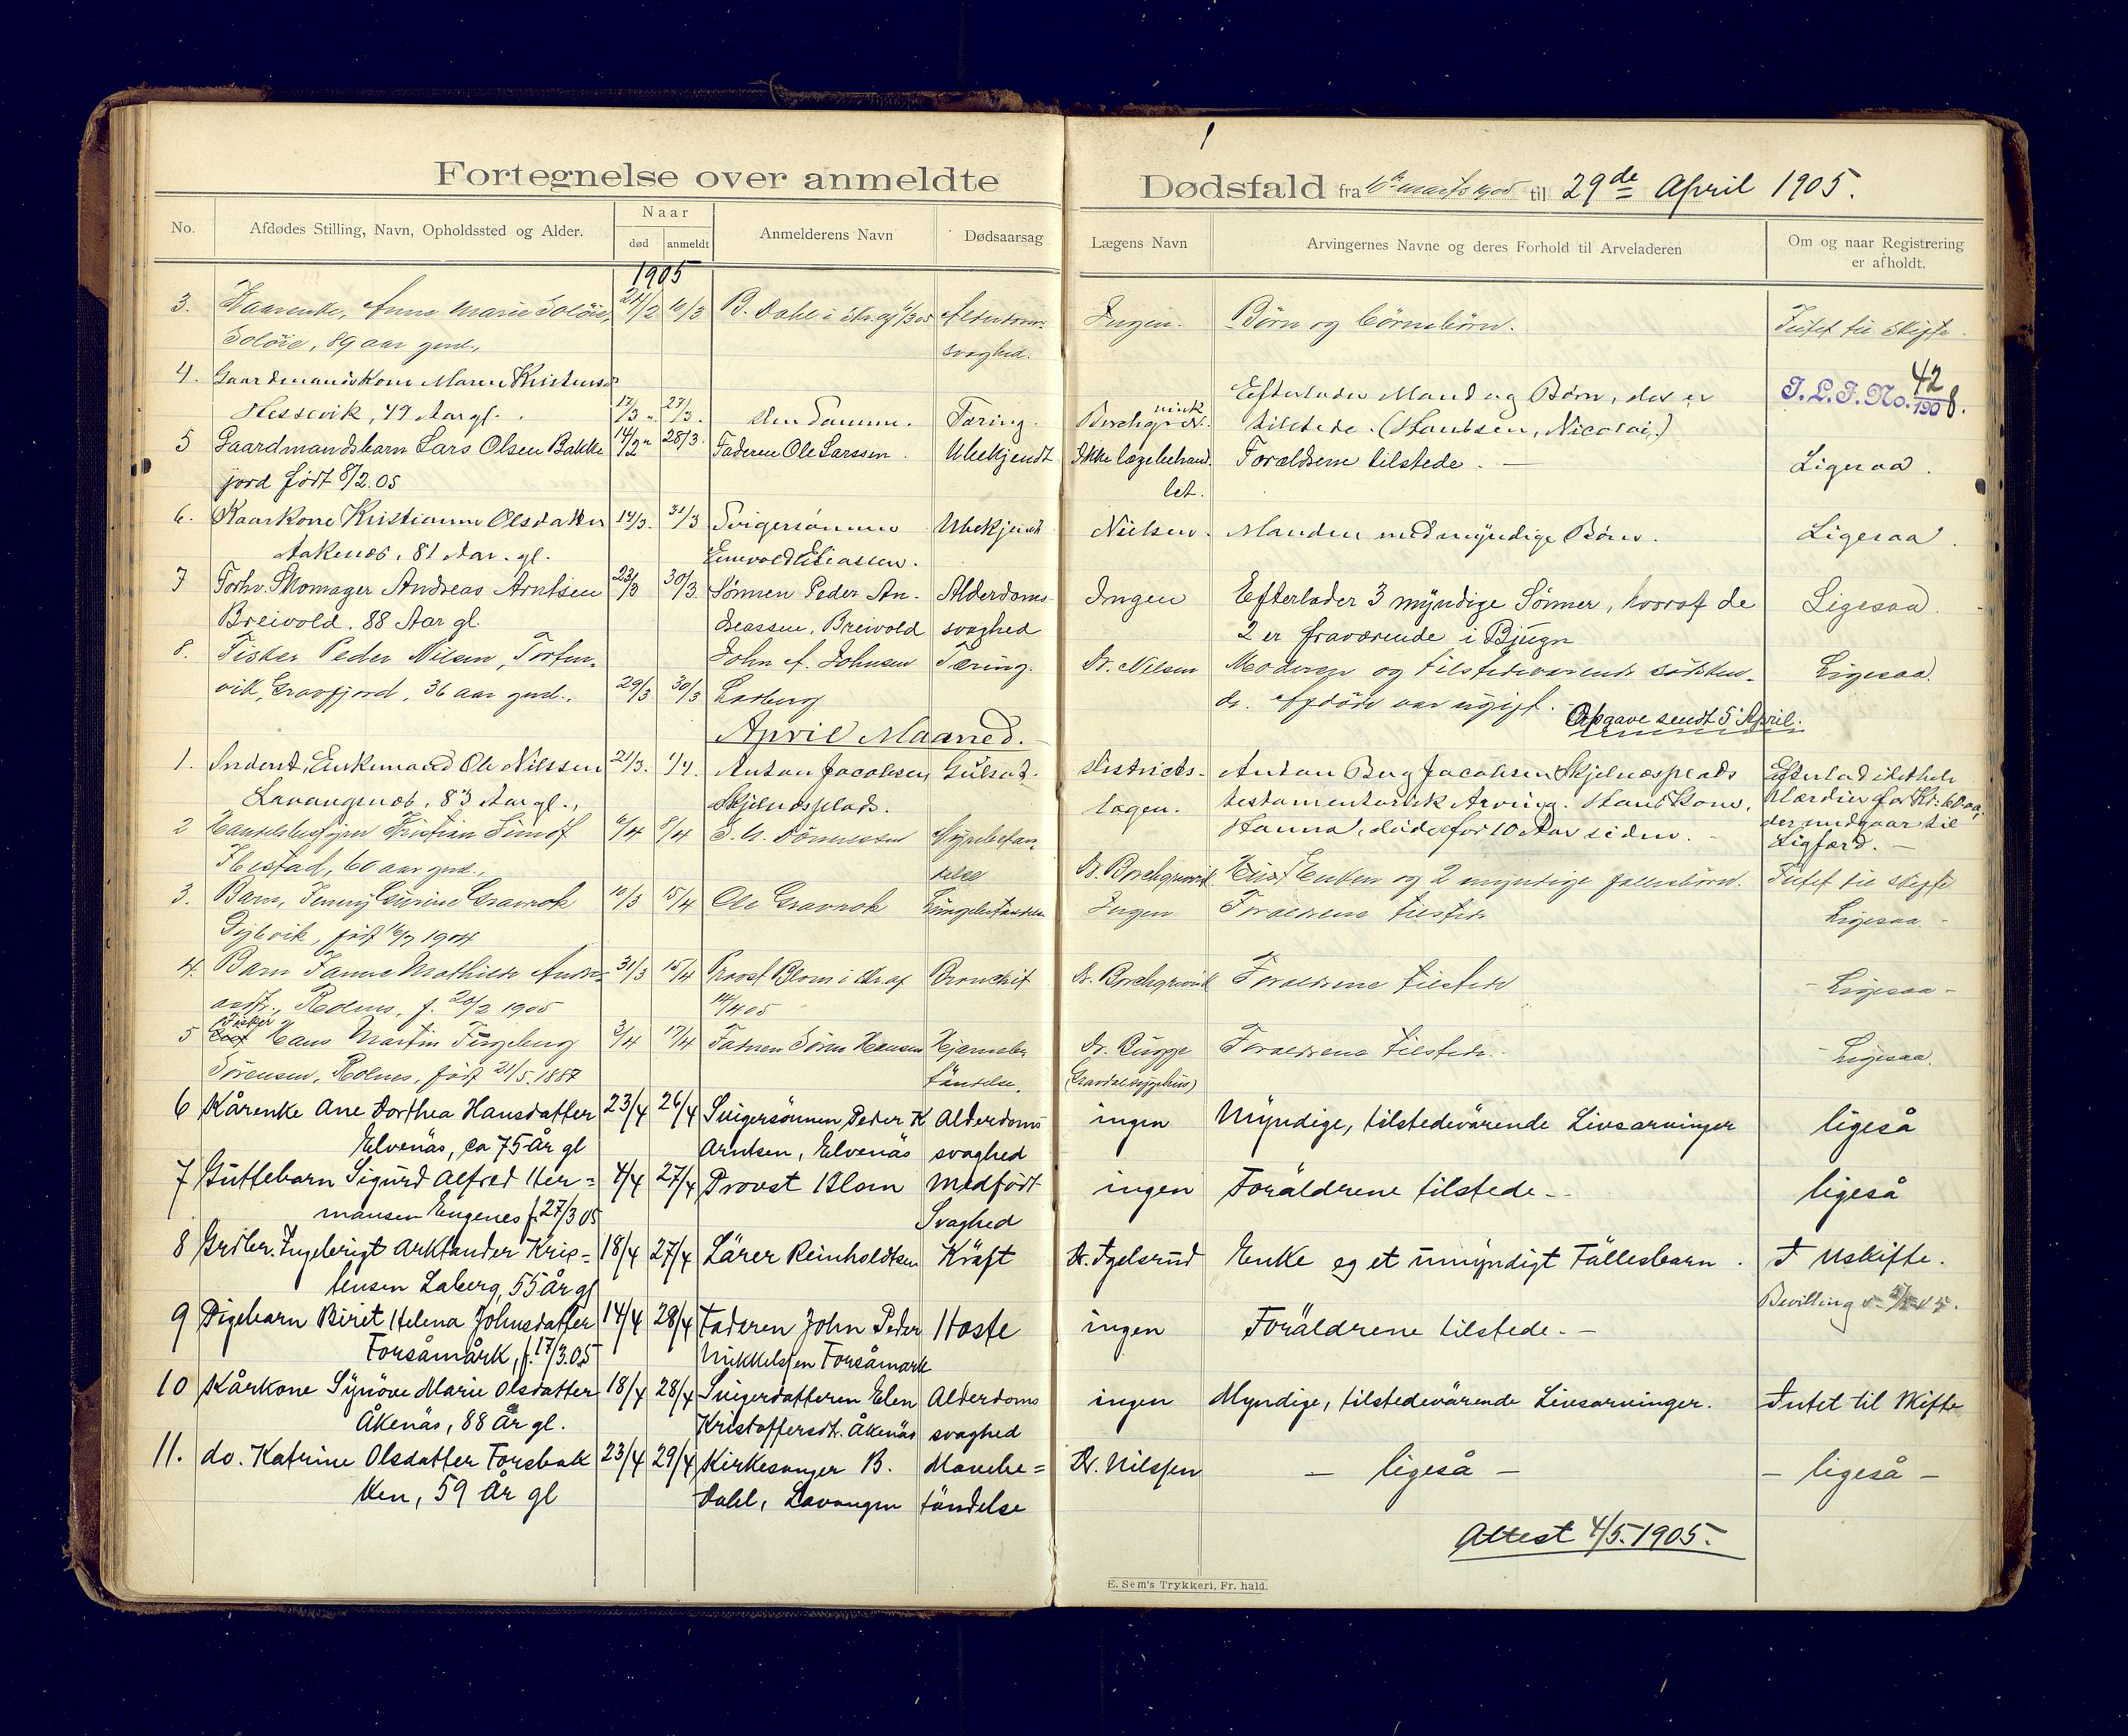 Fortegnelse over anmeldte
Dødsfald fra marts 1905 til 29de April 1905.
No.
Afdødes Stilling, Navn, Opholdssted og Alder.
Naar
død
anmeldt
Anmelderens Navn
Dødsaarsag
Lægens Navn
Arvingernes Navne og deres Forhold til Arveladeren
Om og naar Registrering
er afholdt.
1905
3. Kaarenke, Anne Marie Soløie, 24/2 10/3 B. Dahl i skr. af 6/3 05 Alderdoms- Ingen. Børn og børnebørn. Intet til skifte.
Soløie, 89 aar gml., svaghed.
4. Gaardmandskone Maren Kristensd.
Hessevik, 49 Aar gl. 17/3 27/3. den Samme. Tæring. Borchgrevink. Efterlader Mand og Børn, der er
tilstede. (Hantsen, Nicolai,) S. L. F. No. 42/1908.
5 Gaardmandsbarn Lars Olsen Bakke 14/2 28/3. Faderen Ole Larssen. Ubekjendt Ikke lægebehand- Forældrene tilstede. — Ligesaa.
jord født 8/2.05 let.
6. Kaarkone Kristianne Olsdatter 14/3. 31/3 Svigersønnen Ubekjendt Nielsen. Manden med myndige Børn. Ligesaa.
Aakenes, 81 Aar. gl. Enevold Eliassen.
7 Forhv. Skomager Andreas Arntsen 23/3 30/3. Sønnen Peder An- Alderdoms- Ingen Efterlader 3 myndige Sønner, hvoraf de Ligesaa.
Breivold. 88 Aar gl. dreassen, Breivold svaghed 2 er fraværende i Bjugn
8. Fisker Peder Nilsen, John A. Johnsen Tæring. Dr. Nilsen Moderen og tilstedeværende søsken- Ligesaa.
vik, Gravfjord, 36 aar gml., 29/3 30/3 Laberg de. Afdøde var ugift.
Opgave sendt 5 April.
April Maaned.
1. Inderst, Enkemand Ole Nilssen 21/3. 1/4. Anton Jacobsen, Gulsot. Districts- Anton Berg Jacobsen Skjelnesplads Efterlod idethele
Lavangsnes, 83 Aar gl., Skjelnesplads. lægen. testamentarisk Arving. Hans Kone, Værdier for Kr: 60,00,
Hanna, døde for 10 Aar siden. — der medgaar til
Ligfærd. —
2 Handelsbestyrer Kristian Lund 6/4 8/4
Ibestad, 60 aar gml., Dr. Borchgrevink Enken og 2 myndige fællesbørn. Intet til skifte
3. Barn, Jenny Gurine Gravrok 10/3 15/4 Ole Gravrok Lungebetændelse Ingen Forældrene tilstede Ligesaa -
født 16/7 1904
4. Barn Janne Mathilde Andre- 31/3 15/4 Provst Blom i skr. af Bronchit Dr. Borchgrevink Forældrene tilstede - Ligesaa -
asdtr., Rednes, f. 20/2 1905 14/4 05
5 Fisker Hans Martin Fingberg 3/4 17/4 Faderen Søren Hansen Hjernebe- Dr. Rugge Forældrene tilstede. - Ligesaa.
Sørensen, Rolnes, født 21/5. 1887 tændelse. (Gravdal sygehus)
6 Kårenke Ane Dorthea Hansdatter 23/4 26/4 Svigersønnen Peder K Alderdoms ingen Myndige, tilstedevärende Livsarvinger ligeså
Elvenäs, ca 75 år gl Arntsen, Elvenäs svaghed
7 Guttebarn Sigurd Alfred Her= 4/4 27/4 Provst Blom Medfödt ingen Foräldrene tilstede. - ligeså
mansen Engenes f. 27/3 05 Svaghed
8 Grdbr. Ingebrigt Arktander Kris= 18/4 27/4 Lärer Reinholdtsen Kräft Dr. Igelsrud Enke og et umyndigt Fällesbarn. I Uskifte.
tensen Laberg, 55 år gl Bevilling
9 Pigebarn Biret Helena Johnsdatter 14/4 28/4 Faderen John Peder Hoste ingen Foräldrene tilstede. -
Forsåmårk, f. 17/3.05 Mikkelsen Forsåmark
10 Kårkone Synöve Marie Olsdatter 18/4 28/4 Svigerdatteren Elen Alderdoms ingen Myndige, tilstedevärende Livsarvinger. Intet til Skifte
Åkenäs, 88 år gl. Kristoffersdt. Åkenäs svaghed
11. do. Katrine Olsdatter Forsbak 23/4 29/4 Kirkesanger B. Mavebe= Dr. Nilssen - ligeså - - ligeså -
ken, 59 år gl Dahl, Lavangen tändelse
Attest 4/5. 1905.
E. Sem's Trykkeri, Fr. hald.